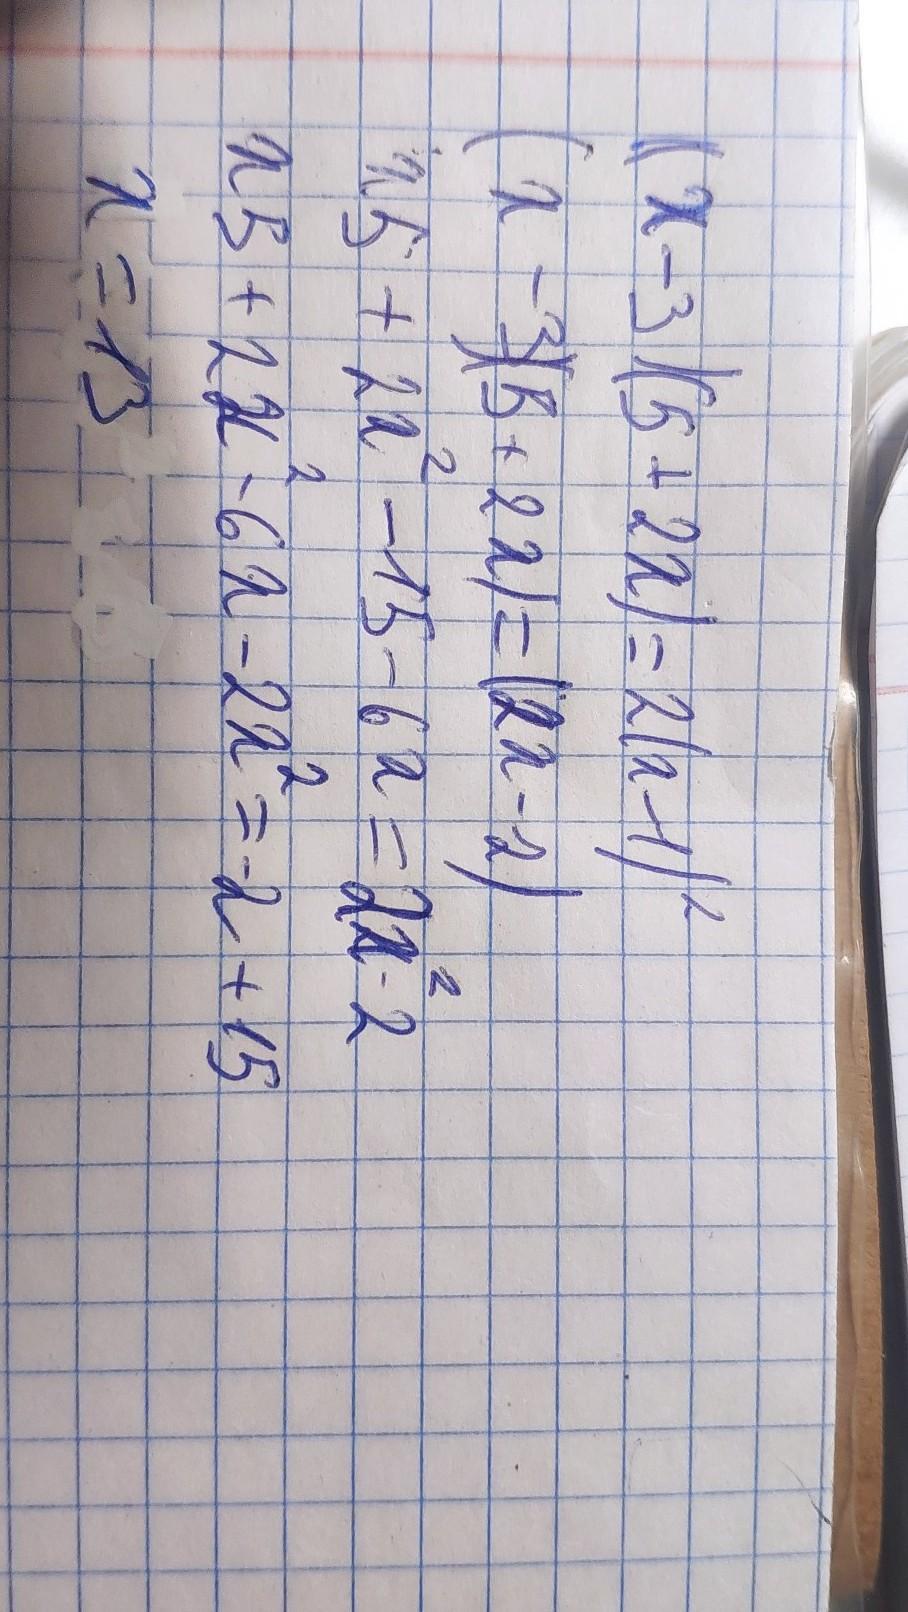 (x-3)(5+2x)=2(x-1)²
(x-3)(5+2x)=(2x-2)
x5+2x²-15-6x=2x²-2
x5+2x²-6x-2x²=-2+15
x=13